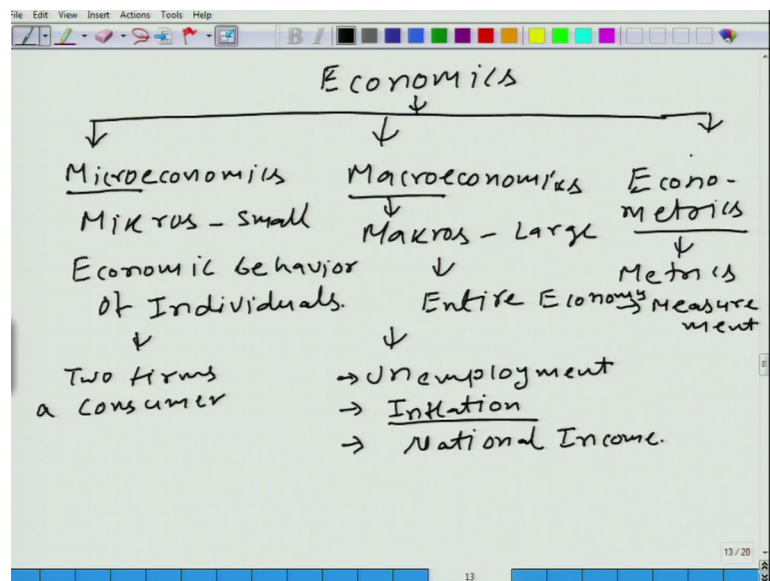 File Edit View Insert Actions Tools Help
B I
Economics
Microeconomics
Mikros - Small
Economic behavior
of Individuals.
Two firms
a consumer
Macroeconomics
Makros - Large
Entire Economy
→ Unemployment
→ Inflation
→ National Income.
Econo-
metrics
Metrics
→ Measure
ment
13 / 20
13